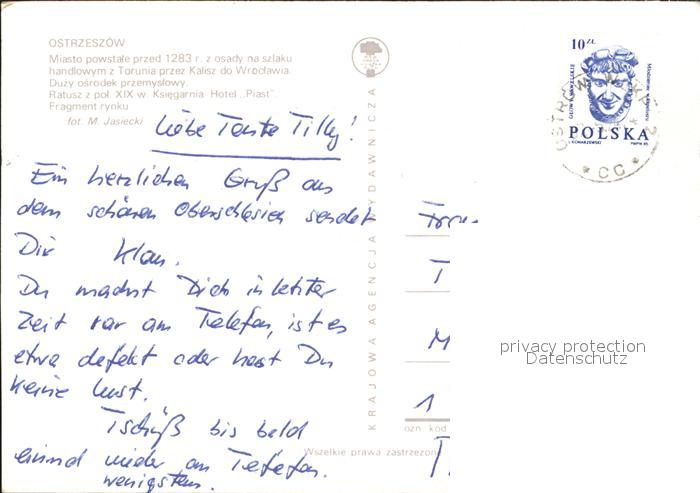 OSTRZESZÓW
Miasto powstałe przed 1283 r. z osady na szlaku
handlowym z Torunia przez Kalisz do Wrocławia.
Duży ośrodek przemysłowy.
Ratusz z poł. XIX w. Księgarnia. Hotel „Piast".
Fragment rynku
fot. M. Jasiecki
Liebe Tante Tilly!
Ein herzlichen Gruß aus
dem schönen Oberschlesien sendet
Dir Klaus.
Du machst Dich in letzter
Zeit rar am Telefon, ist es
etwa defekt oder hast Du
keine Lust.
Tschüß bis bald
einmal wieder am Telefon.
wenigstens.
KRAJOWA AGENCJA WYDAWNICZA
10 ZŁ
GŁOWY WAWELSKIE
POLSKA
CC
Frau
T
M
1
ozn kod
Wszelkie prawa zastrzeżone
privacy protection
Datenschutz